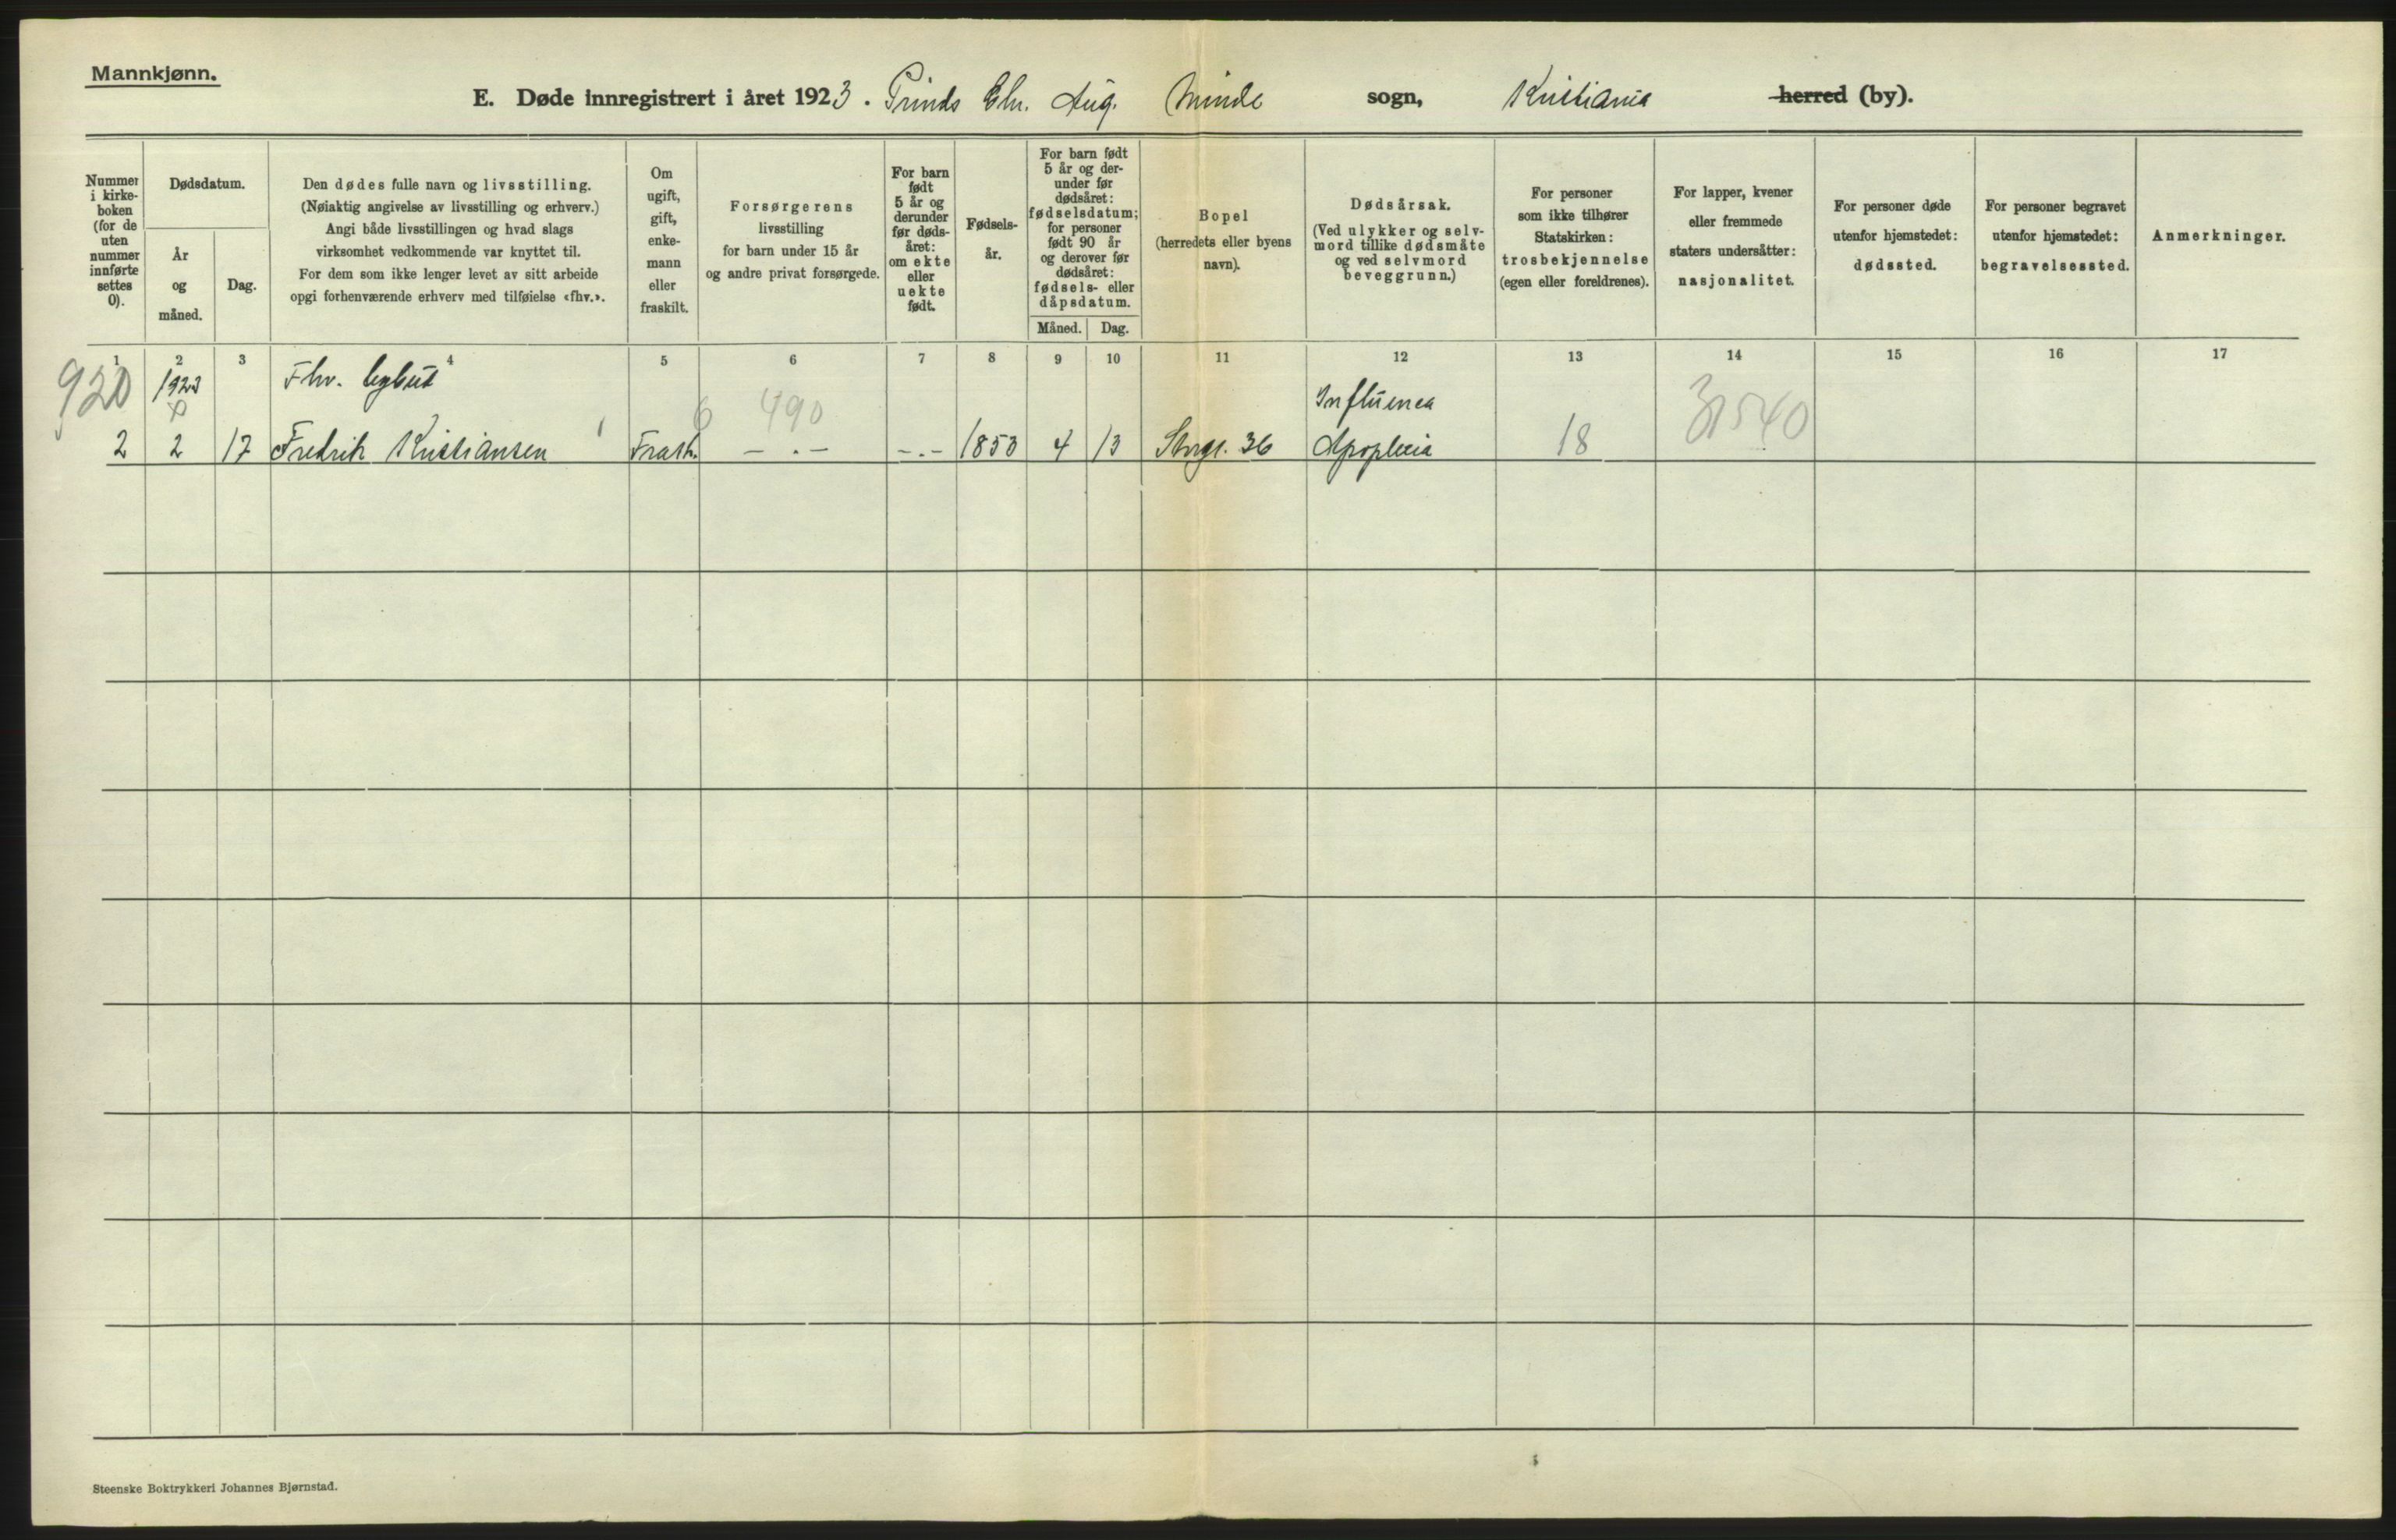 Mannkjønn.
E. Døde innregistrert i året 1923. Prinds Chr. Aug. Minde sogn, Kristiania herred (by).
Nummer i kirkeboken (for de uten nummer innførte settes 0).
Dødsdatum.
År og måned.
Dag.
Den dødes fulle navn og livsstilling.
(Nøiaktig angivelse av livsstilling og erhverv.)
Angi både livsstillingen og hvad slags
virksomhet vedkommende var knyttet til.
For dem som ikke lenger levet av sitt arbeide
opgi forhenværende erhverv med tilføielse «fhv.».
Om ugift, gift, enkemann eller fraskilt.
Forsørgerens
livsstilling
for barn under 15 år
og andre privat forsørgede.
For barn født 5 år og derunder før dødsåret: om ekte eller uekte født.
Fødselsår.
For barn født 5 år og derunder før dødsåret: fødselsdatum; for personer født 90 år og derover før dødsåret: fødsels- eller dåpsdatum.
Måned. Dag.
Bopel
(herredets eller byens
navn).
Dødsårsak.
(Ved ulykker og selvmord tillike dødsmåte og ved selvmord beveggrunn.)
For personer
som ikke tilhører
Statskirken:
trosbekjennelse
(egen eller foreldrenes).
For lapper, kvener
eller fremmede
staters undersåtter:
nasjonalitet.
For personer døde
utenfor hjemstedet:
dødssted.
For personer begravet
utenfor hjemstedet:
begravelsessted.
Anmerkninger.
1 2 3 4 5 6 7 8 9 10 11 12 13 14 15 16 17
920 1923 Fhv. bybud 6 490 Influenca
2 2 17 Fredrik Kristiansen Frask. — . — -.- 1853 4 13 Storgt. 36 Apoplexia 18
Steenske Boktrykkeri Johannes Bjørnstad.